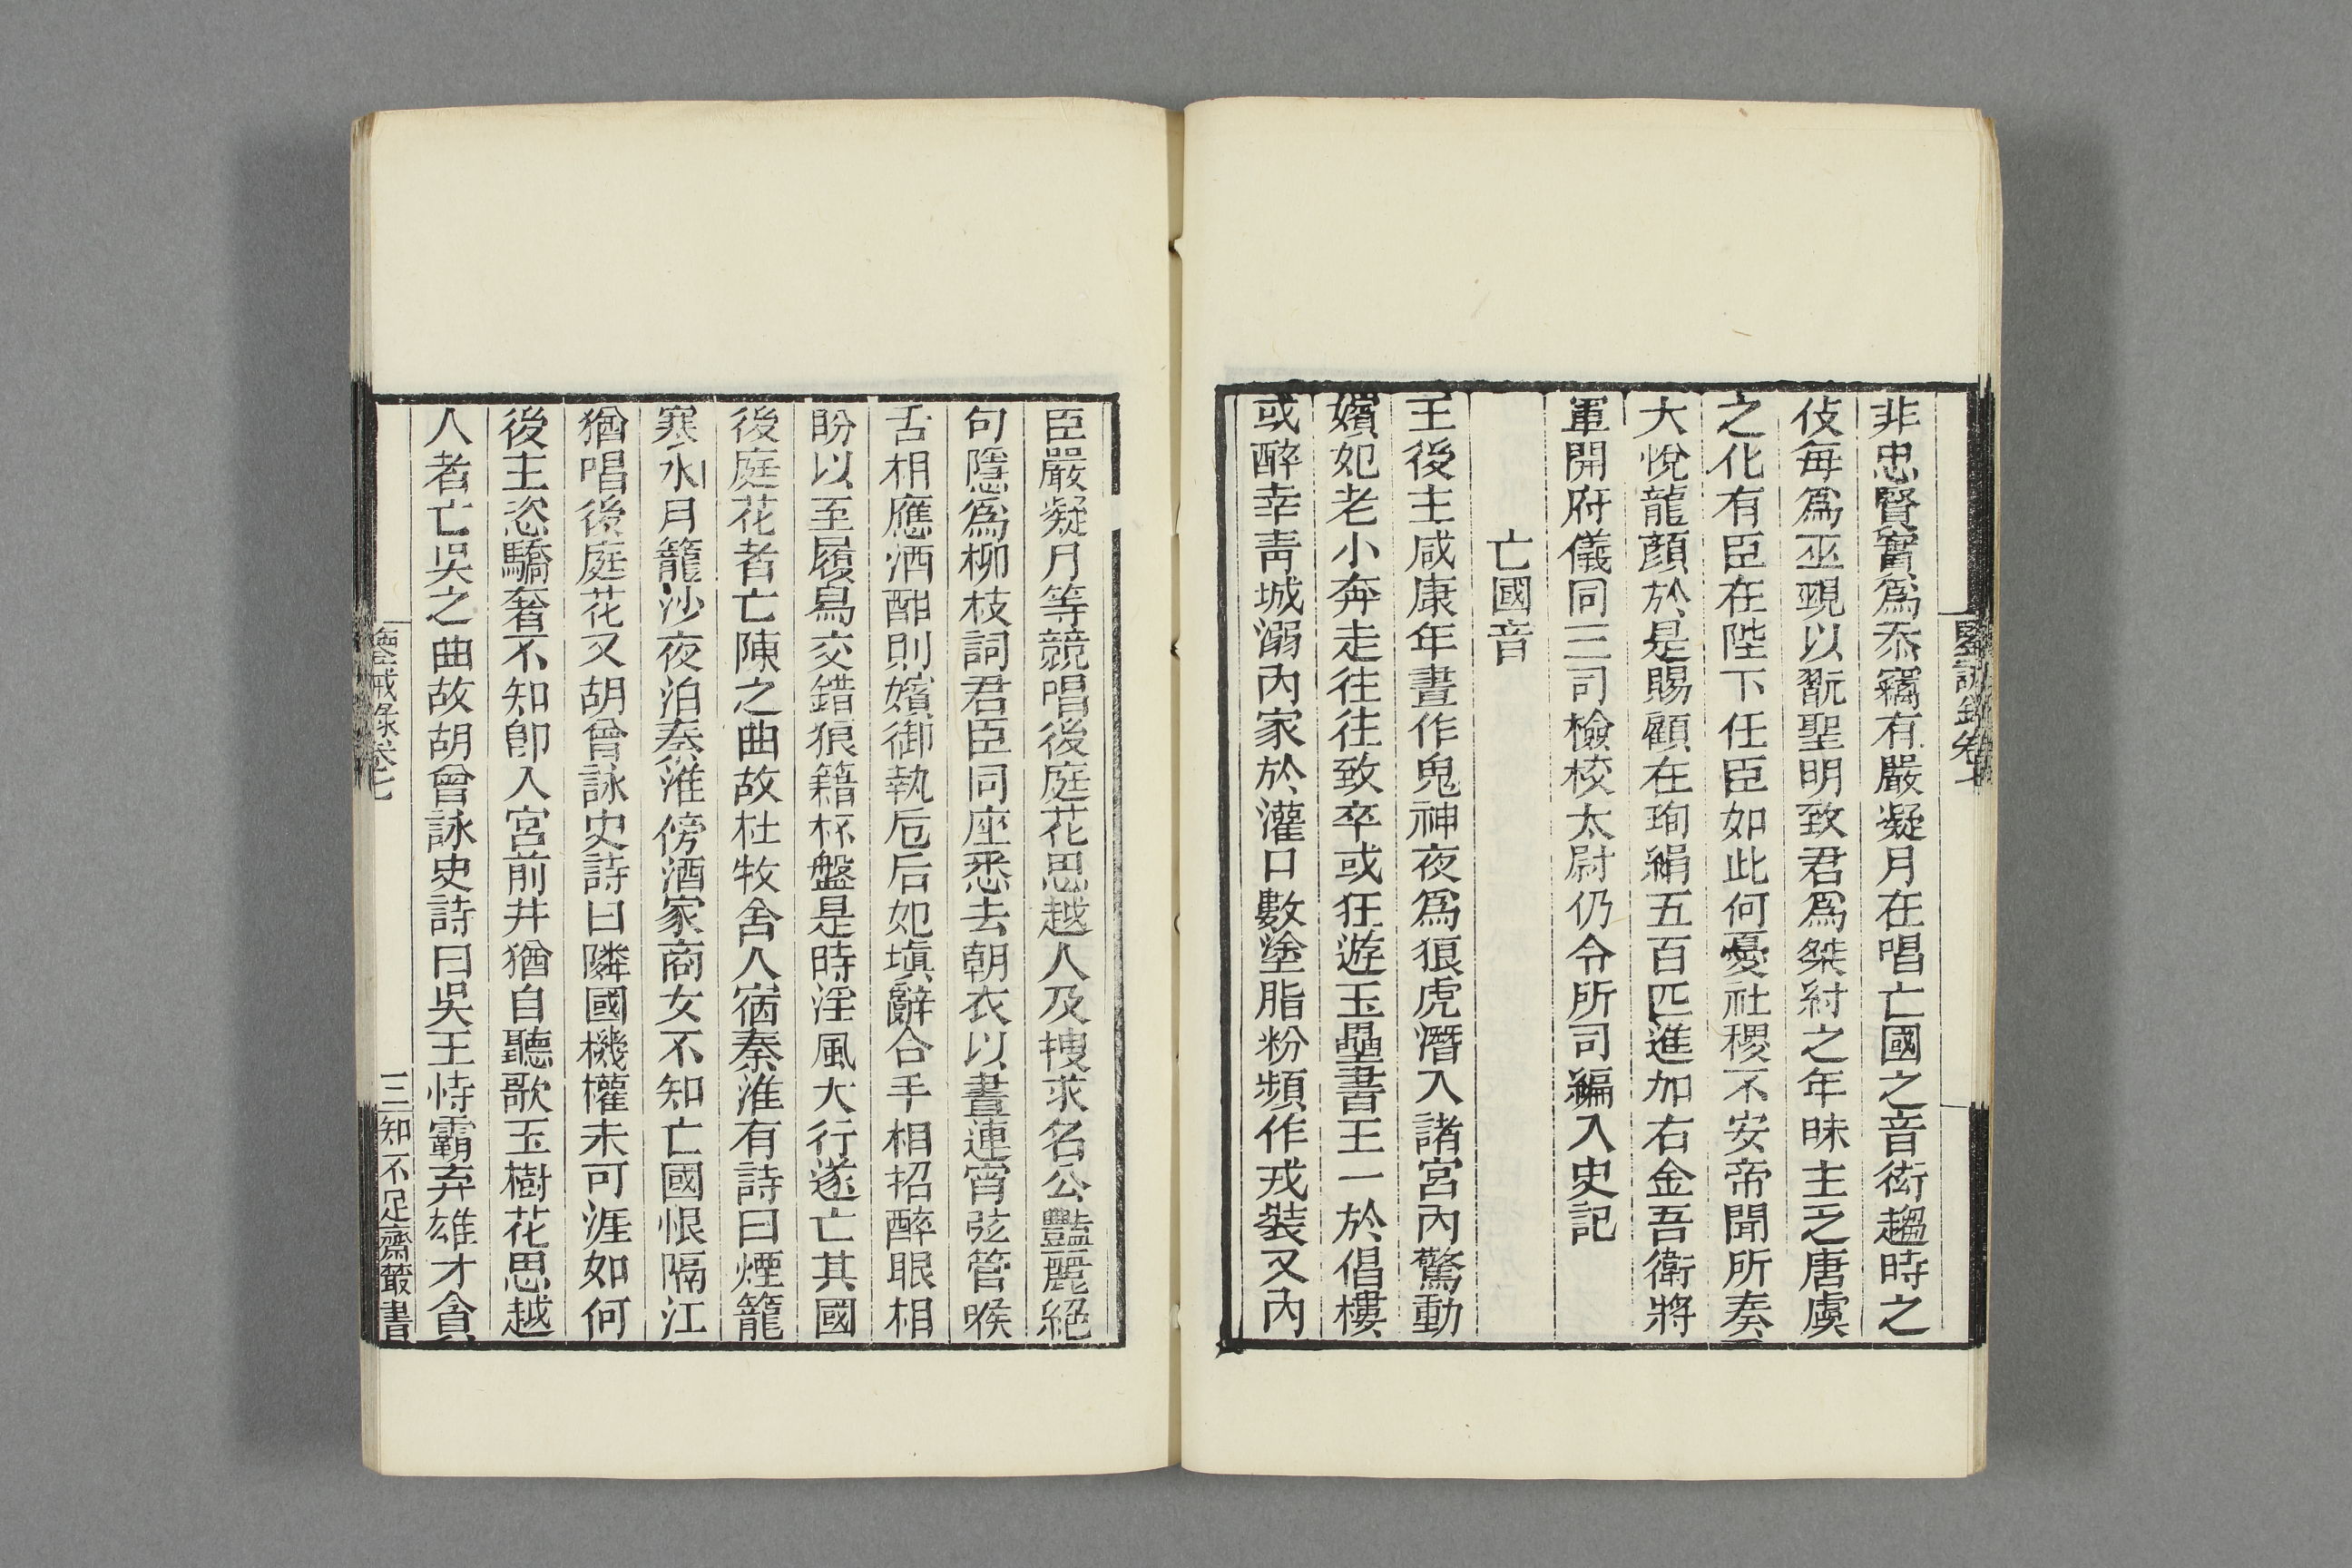 非忠賢實爲忝竊有嚴凝月在唱亡國之音衒趨時之
伎每爲巫覡以翫聖明致君爲桀紂之年昧主乏唐虞
之化有臣在陛下任臣如此何憂社稷不安帝聞所奏
大悅龍顔於是賜顧在珣絹五百匹進加右金吾衛將
軍開府儀同三司檢校太尉仍令所司編入史記
亡國音
王後主咸康年晝作鬼神夜爲狼虎潛入諸宮內驚動
嬪妃老小奔走往往致卒或狂遊玉壘書王一於倡樓
或醉幸青城溺內家於灌口數塗脂粉頻作戎裝又內
臣嚴凝月等競唱後庭花思越人及搜求名公豔麗絕
句隱爲柳枝詞君臣同座悉去朝衣以晝連宵弦管喉
舌相應酒酣則嬪御執卮后妃塡辭合手相招醉眼相
盼以至履舄交錯狼籍杯盤是時淫風大行遂亡其國
後庭花者亡陳之曲故杜牧舍人宿秦淮有詩曰煙籠
寒水月籠沙夜泊秦淮傍酒家商女不知亡國恨隔江
猶唱後庭花又胡曾詠史詩曰隣國機權未可涯如何
後主恣驕奢不知卽入宮前井猶自聽歌玉樹花思越
人者亡吳之曲故胡曾詠史詩曰吳王恃霸弃雄才貪
鑒戒錄卷七
三
知不足齋叢書